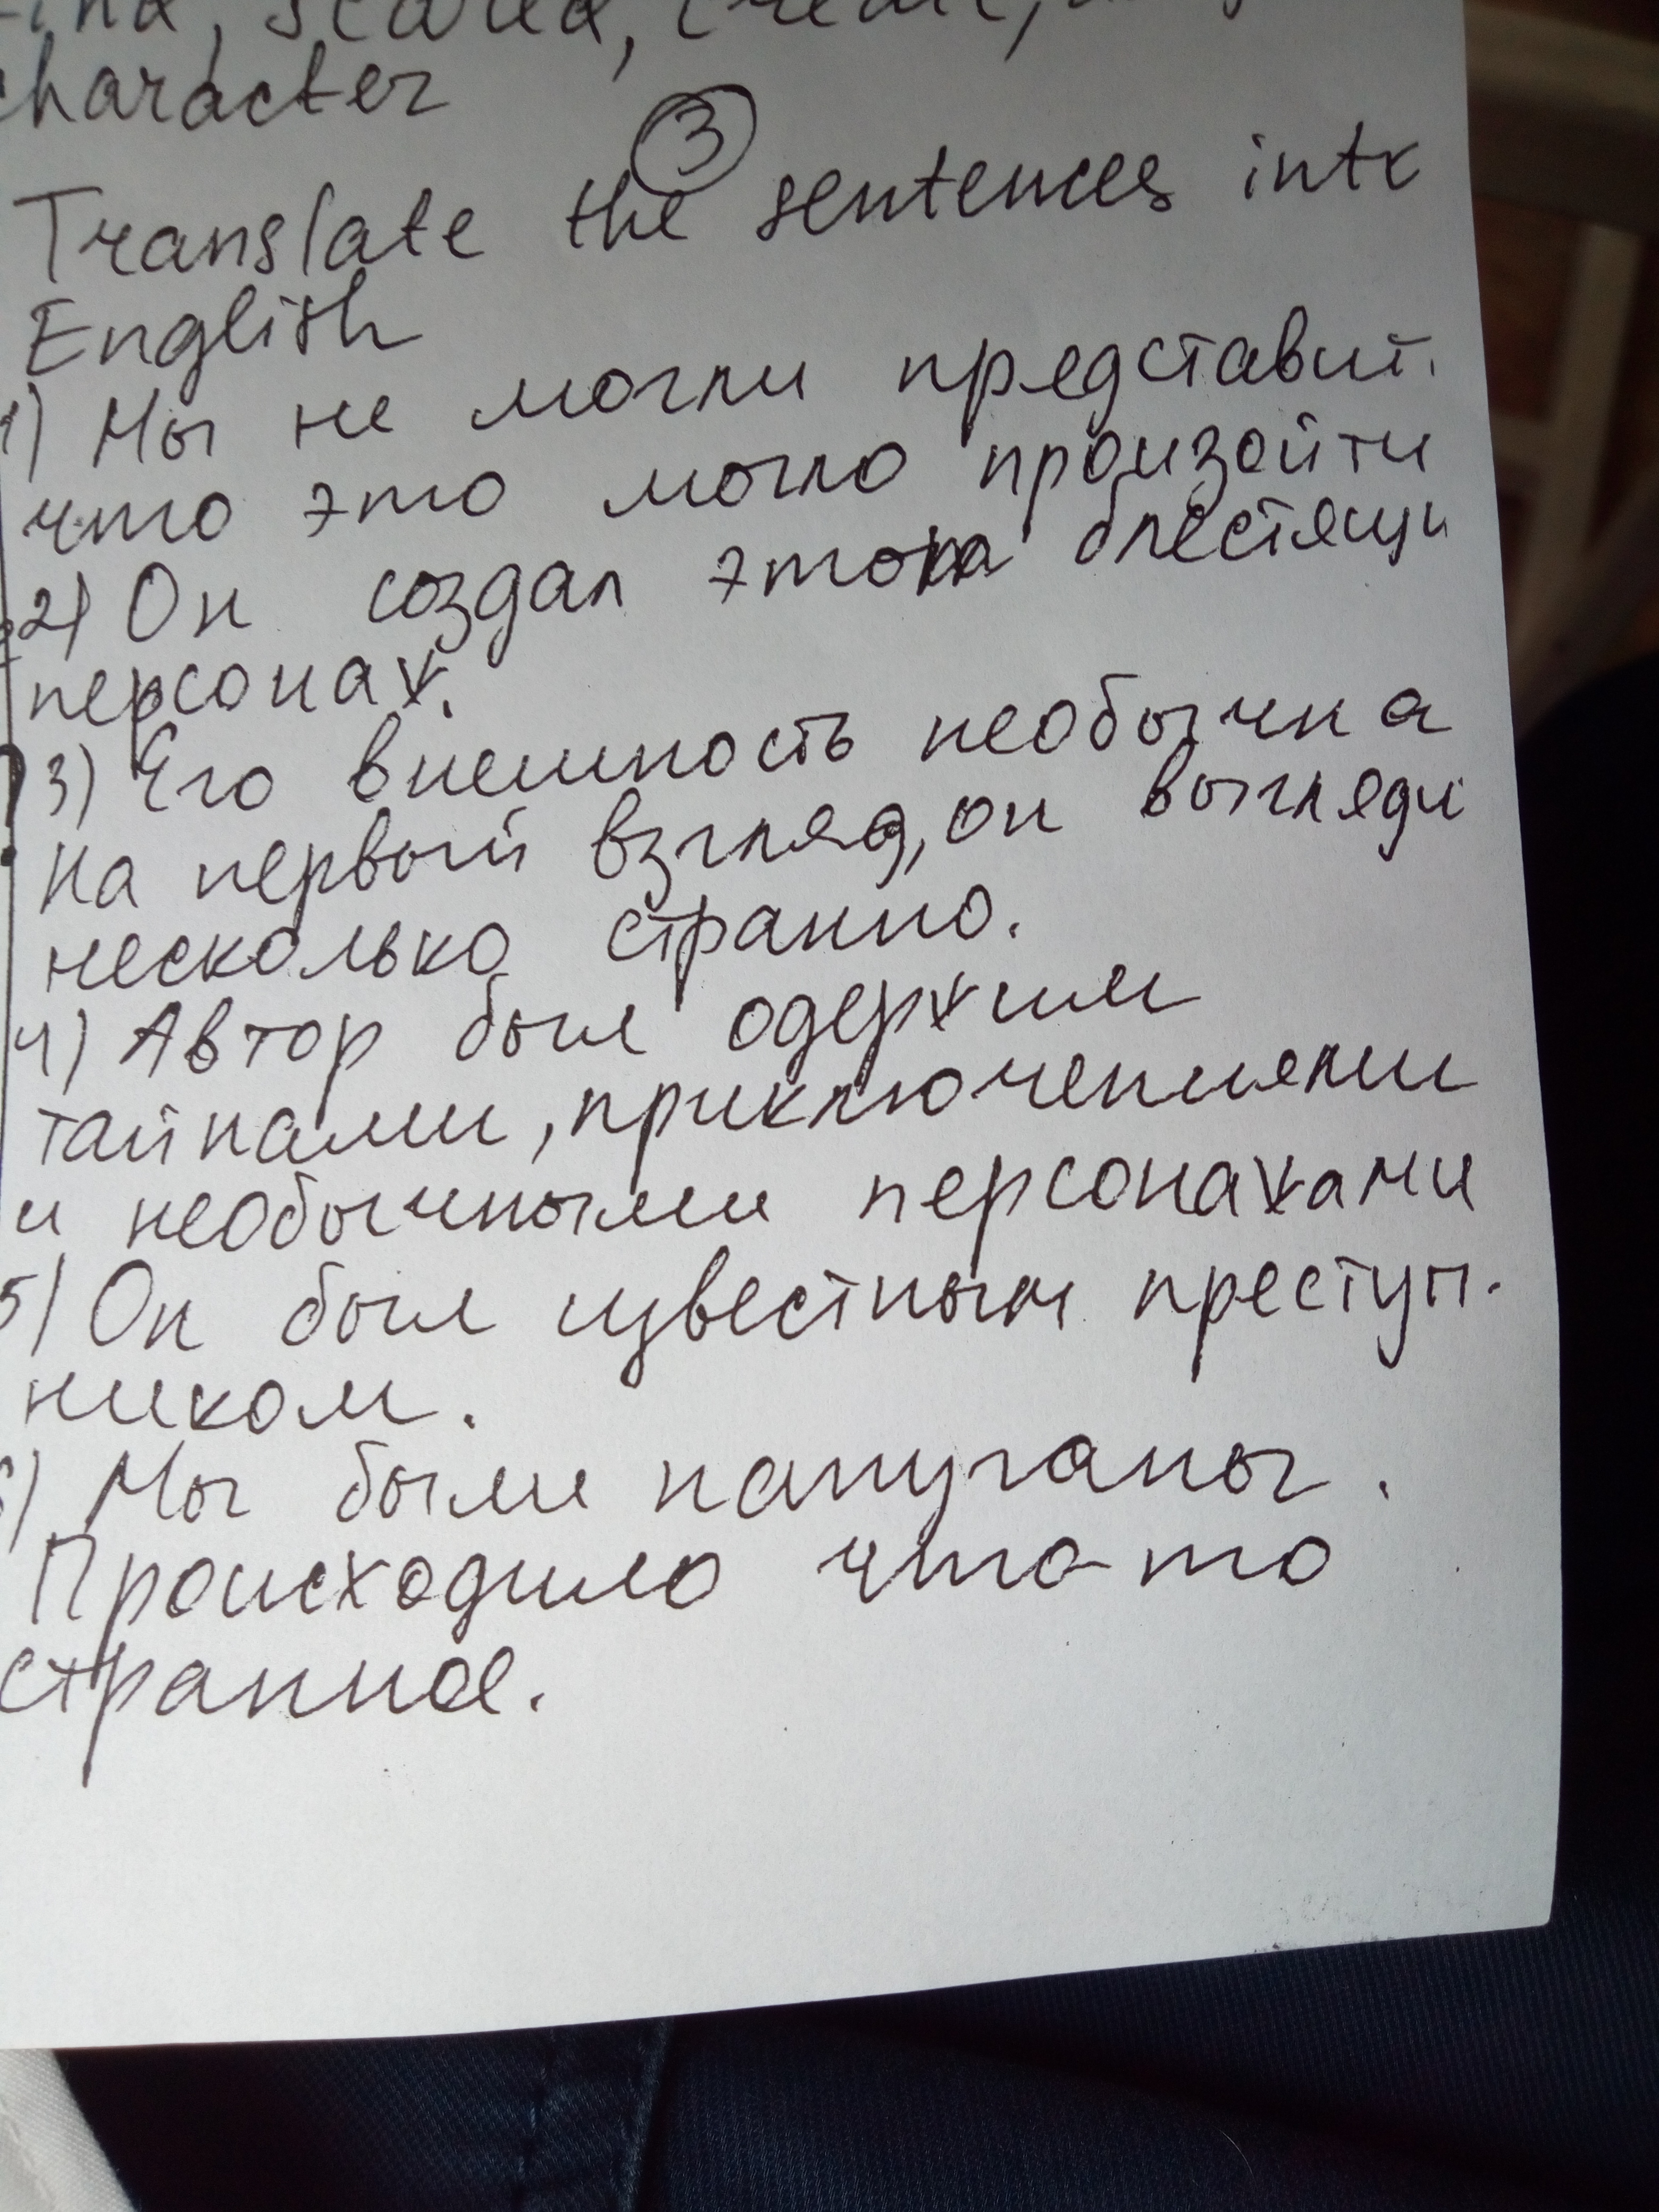 scared, create,
character
3
Translate the sentences into
English
1) Мы не могли представит.
что это могло произойти
2) Он создал этого блестящи
персонаж.
3) Его внешность необычна
На первый взгляд, он выгляди
несколько странно.
4) Автор был одержим
тайнами, приключениями
и необычными персонажами
5) Он был известным преступ-
ником.
6) Мы были напуганы.
Происходило что-то
странное.